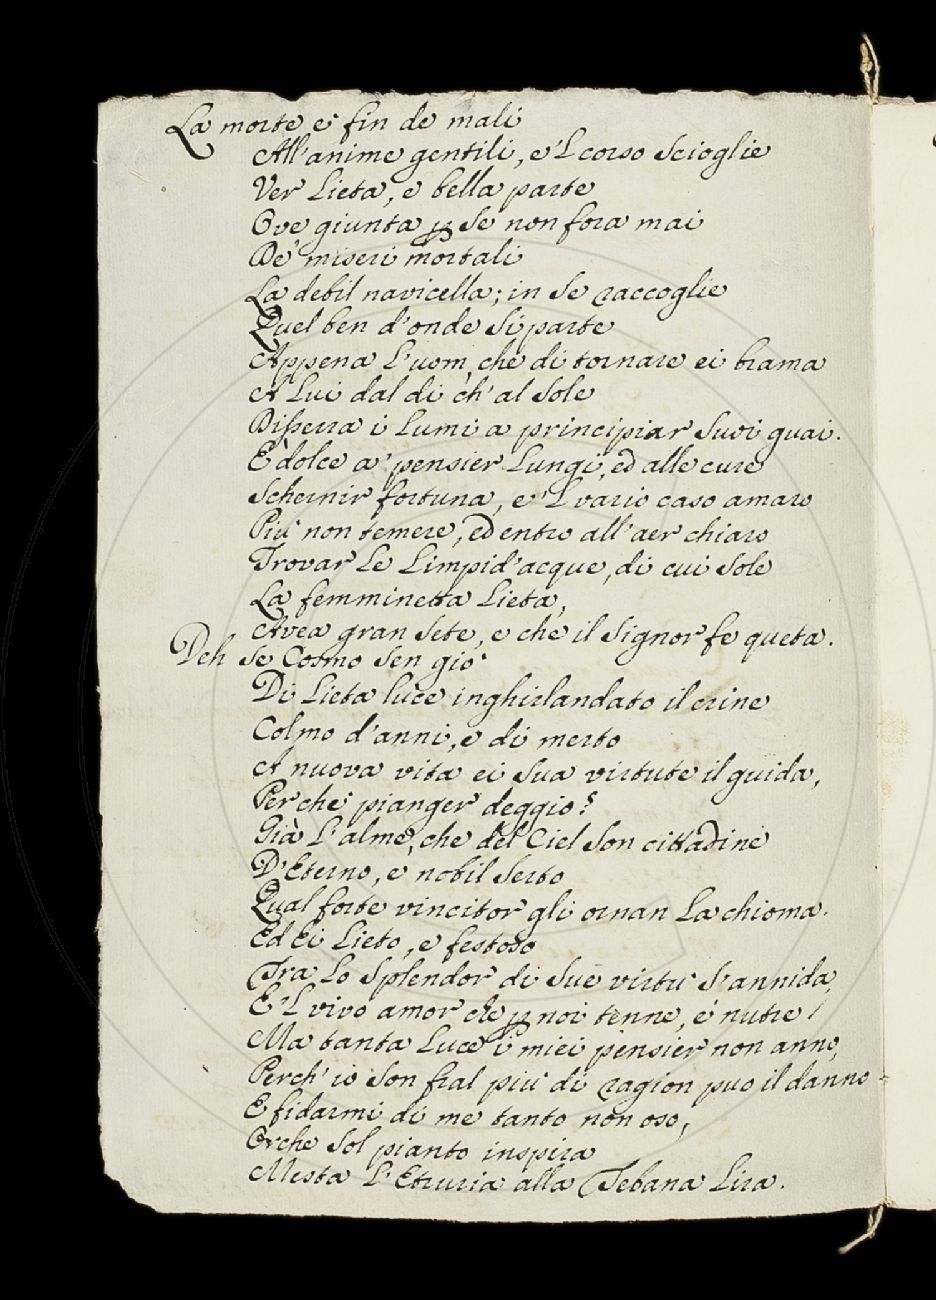 La morte e' fin de mali
All'anime gentili, e'l corso scioglie
Ver lieta, e bella parte
Ove giunta ꝑ se non fora mai
De' miseri mortali
La debil navicella; in se raccoglie
Quel ben d'onde si parte
Appena l'uom, che di tornare ei brama
A lui dal di ch'al sole
Disserra i lumi a principiar suoi guai.
È dolce a' pensier lungi, ed alle cure
Schernir fortuna, e'l vario caso amaro
Più non temere, ed entro all'aer chiaro
Trovar le limpid'acque, di cui sole
La femminetta lieta,
Avea gran sete, e che il Signor fe queta.
Deh se Cosmo sen gio'
Di lieta luce inghirlandato il crine
Colmo d'anni, e di merto
A nuova vita ei sua virtute il guida,
Perche' pianger deggio?
Già l'alme, che del Ciel son cittadine
D'Eterno, e nobil serto
Qual forte vincitor gli ornan la chioma.
Ed Ei lieto, e festoso
Tra lo splendor di sue virtu' s'annida,
E'l vivo amor che ꝑ noi tenne, e' nutre
Ma tanta luce i miei pensier non anno,
Perch' io son fral piu' di ragion puo il danno
E fidarmi di me tanto non oso,
Orche sol pianto inspira
Mesta l'Etruria alla Tebana Lira.